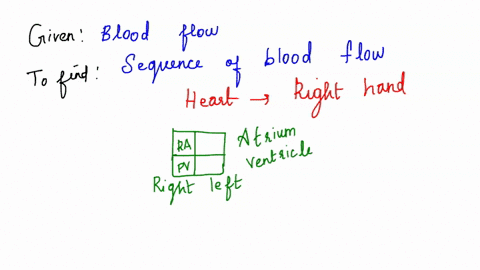 Given: Blood flow
To find: Sequence of blood flow
Heart → Right hand
RA
Atrium
PV
ventricle
Right left